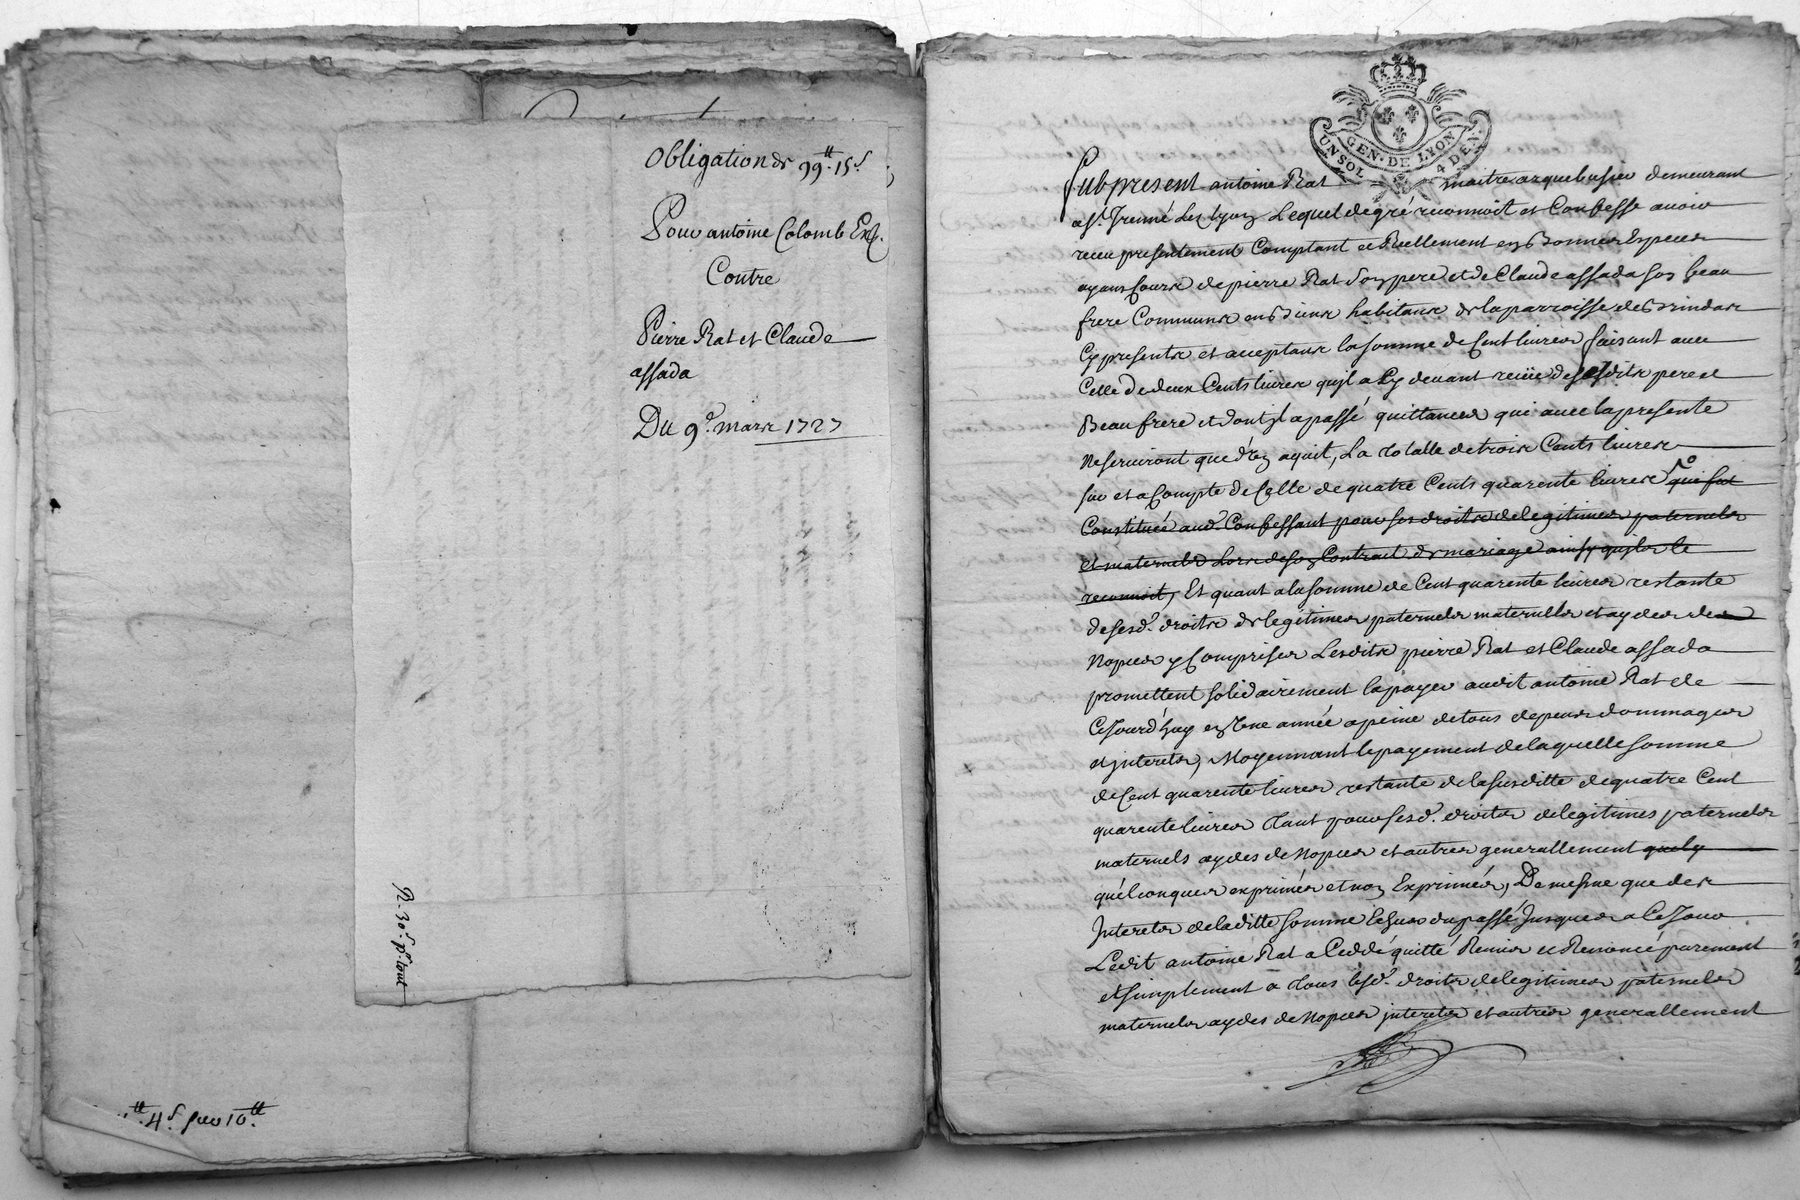 Obligation de 99tt. 15s.
Pour antoine Colomb Exp.
Contre
Pierre Rat et Claude
assada
Du 9e. mars 1727
R. 30s. pr. tout
4s. Sur 10tt.
GEN. DE LYON
UN SOL 4 DEN.
fut present antoine Rat maitre arquebusier demeurant
a St. Irenné Les lyon Lequel de gré reconnoit et Confesse avoir
receu presentement Comptant et Reellement en Bonnes Especes
ayans Cours de pierre Rat Son pere et de Claude assada son beau
frere Communs en biens habitans de la parroisse de Brindas
Cy presents et aceptans la somme de Cent livres faisant avec
Celle de deux Cents livres qu'jl a Cy devant reciie de sesdits pere et
Beaufrere et dont jl a passé quittances qui avec la presente
Ne serviront que d'un aquit, La totalle de trois Cents livres
sur et a Compte de Celle de quatre Cents quarente livres qui fut
Constituée aud. Confessant pour ses droits de legitimes paternels
et maternels Lors de son Contract de mariage ainsy qu'jls le
reconnoit, Et quant a la somme de Cent quarente livres restante
de sesd. droits de legitimes paternels maternells et aydes de
Nopces y Comprises Lesdits pierre Rat et Claude assada
promettent solidairement la payer audit antoine Rat de
Cejourd'huy en Une année a peine de tous depens dommages
et jnterets, Moyennant le payement de laquelle somme
de Cent quarente livres restante de la susditte de quatre Cent
quarente livres tant pour sesd. droits de legitimes paternels
maternels aydes de Nopces et autres generallement quelq
quélconques exprimés et non Exprimés, De mesme que des
Interets de laditte somme Echus du passé Jusques a Ce Jour
Ledit antoine Rat a Ceddé quitté Remis et Renoncé purement
et simplement a tous lesd. droits de legitimes paternels
maternels aydes de Nopces jnterets et autres generallement